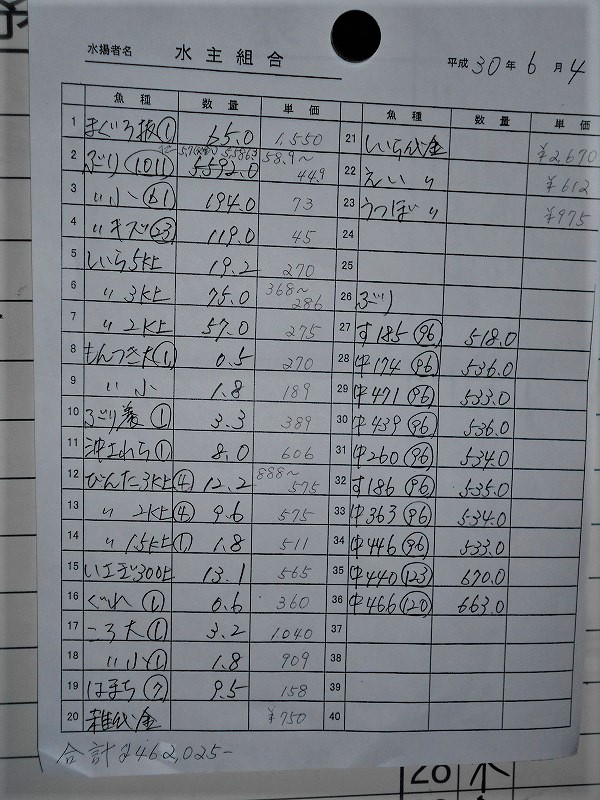 水揚者名 水主組合
平成 30 年 6 月 4
魚種 数量 単価 魚種 数量 単価
1 まぐろ抜① 65.0 1,550
2 ぶり(1011) 5592.0 589~449
3 〃小(61) 194.0 73
4 〃キズ(23) 119.0 45
5 しいら5K上 19.2 270
6 〃 3K上 75.0 368~286
7 〃 2K上 57.0 275
8 もんつき大① 0.5 270
9 〃 小 1.8 189
10 ぶり 3.3 389
11 ① 8.0 606
12 びんた3K上④ 12.2 888~575
13 〃 2K上④ 9.6 575
14 〃 1.5K上① 1.8 511
15 300上 13.1 565
16 ぐれ① 0.6 360
17 ころ大① 3.2 1,040
18 〃小① 1.8 909
19 はまち⑦ 9.5 158
20 雑代金 ¥750
21 しいら代金 ¥2,670
22 えい 〃 ¥612
23 うつぼ 〃 ¥975
24
25
26 ぶり
27 す185 (96) 518.0
28 中174 (96) 536.0
29 中471 (96) 533.0
30 中439 (96) 536.0
31 中260 (96) 534.0
32 す186 (96) 535.0
33 中363 (96) 534.0
34 中446 (96) 533.0
35 中440 (123) 670.0
36 中466 (120) 663.0
37
38
39
40
合計 2462,025-